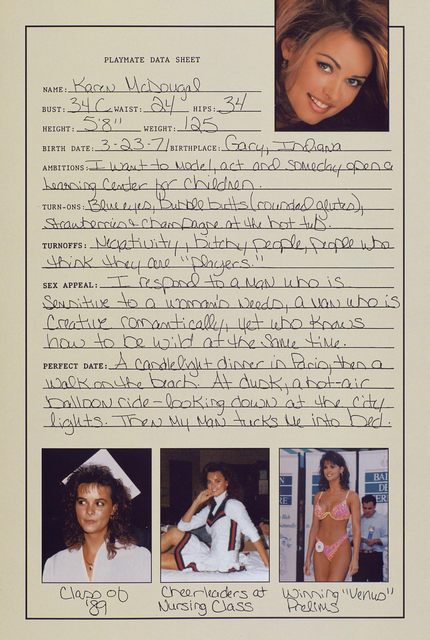 PLAYMATE DATA SHEET
NAME: Karen McDougal
BUST: 34C WAIST: 24 HIPS: 34
HEIGHT: 5'8" WEIGHT: 125
BIRTH DATE: 3-23-71 BIRTHPLACE: Gary, Indiana
AMBITIONS: I want to model, act and someday open a
learning center for children.
TURN-ONS: Blue eyes, bubble butts (rounded glutes),
strawberries & champagne at the hot tub.
TURNOFFS: Negativity, bitchy people, people who
think they are "players."
SEX APPEAL: I respond to a man who is
sensitive to a woman's needs, a man who is
creative romantically, yet who knows
how to be wild at the same time.
PERFECT DATE: A candlelight dinner in Paris, then a
walk on the beach. At dusk, a hot-air
balloon ride-looking down at the city
lights. Then my man tucks me into bed.
Class of '89
Cheerleaders at Nursing Class
Winning "Venus" Prelims